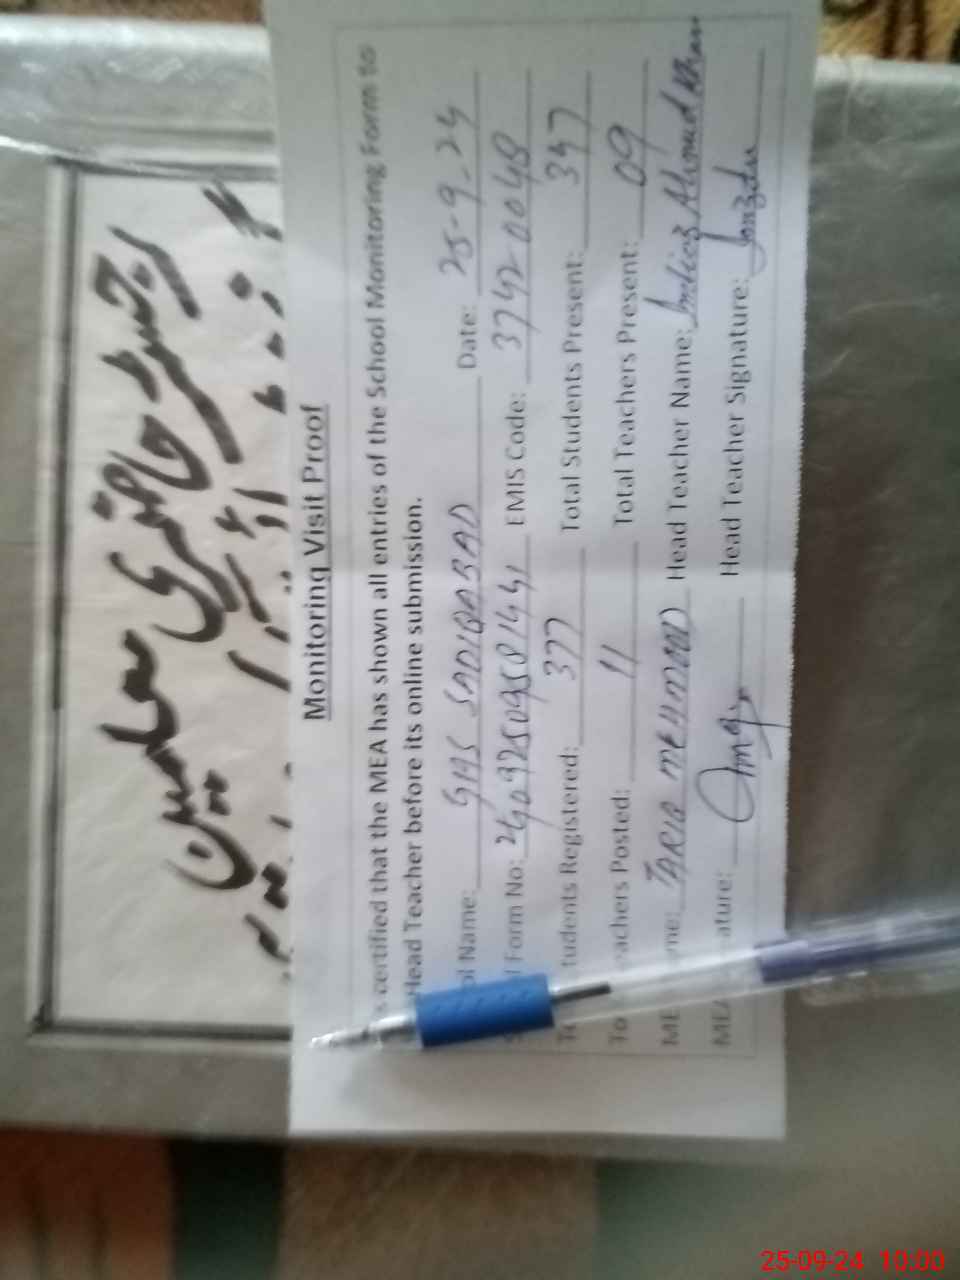 رجسٹر حاضری معلمین
Monitoring Visit Proof
certified that the MEA has shown all entries of the School Monitoring Form to
Head Teacher before its online submission.
Name: GHS SADIQABAD Date: 25-9-24
Form No: EMIS Code: 37420048
Students Registered: 377 Total Students Present: 347
Teachers Posted: 11 Total Teachers Present: 09
TARIQ MEHMOOD Head Teacher Name: Imtiaz Ahmad Khan
Head Teacher Signature:
25-09-24 10:00